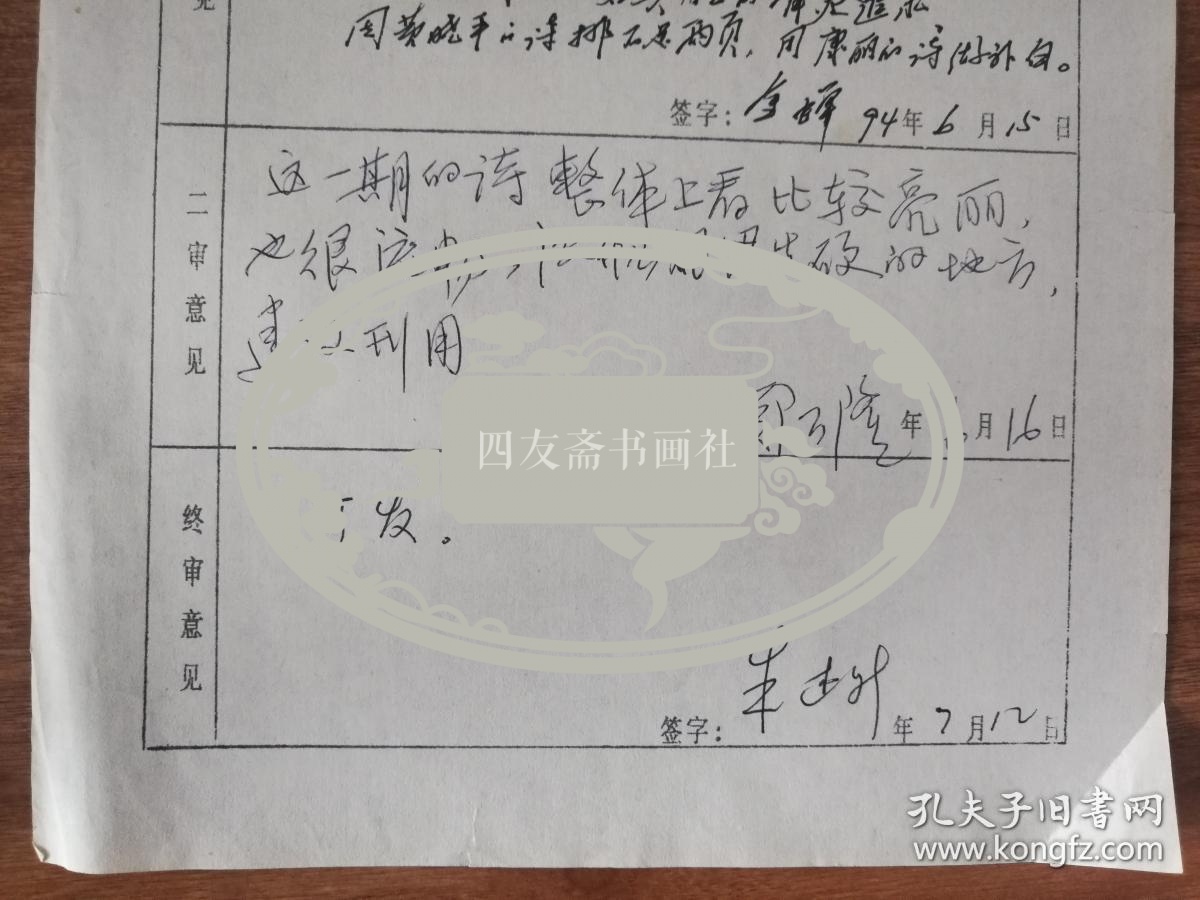 见
因黄晓平的诗排不足两页，用康丽的诗做补白。
签字：金辉 94年6月15日
二审意见
这一期的诗整体上看比较亮丽，
也很流畅 硬的地方，
建议刊用
年 月16日
四友斋书画社
终审意见
可发。
签字：朱建 年7月12日
孔夫子旧书网
www.kongfz.com